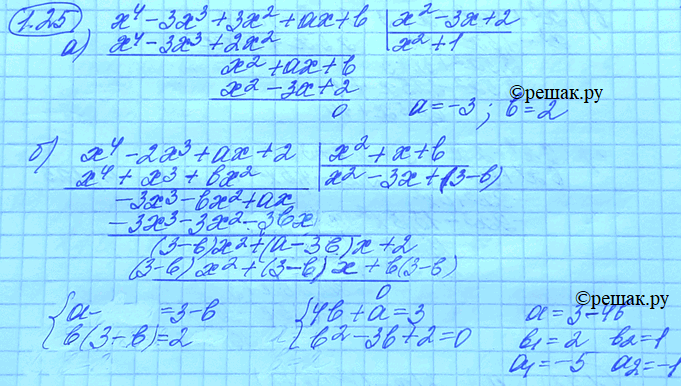 1.25
а) x⁴-3x³+3x²+ax+b | x²-3x+2
x⁴-3x³+2x² | x²+1
x²+ax+b
x²-3x+2
0 a=-3; b=2
©решак.ру
б) x⁴-2x³+ax+2 | x²+x+b
x⁴+x³+bx² | x²-3x+(3-b)
-3x³-bx²+ax
-3x³-3x²-3bx
(3-b)x²+(a-3b)x+2
(3-b)x²+(3-b)x+b(3-b)
0
©решак.ру
{a- =3-b {4b+a=3 a=3-4b
b(3-b)=2 b²-3b+2=0 b₁=2 b₂=1
a₁=-5 a₂=-1